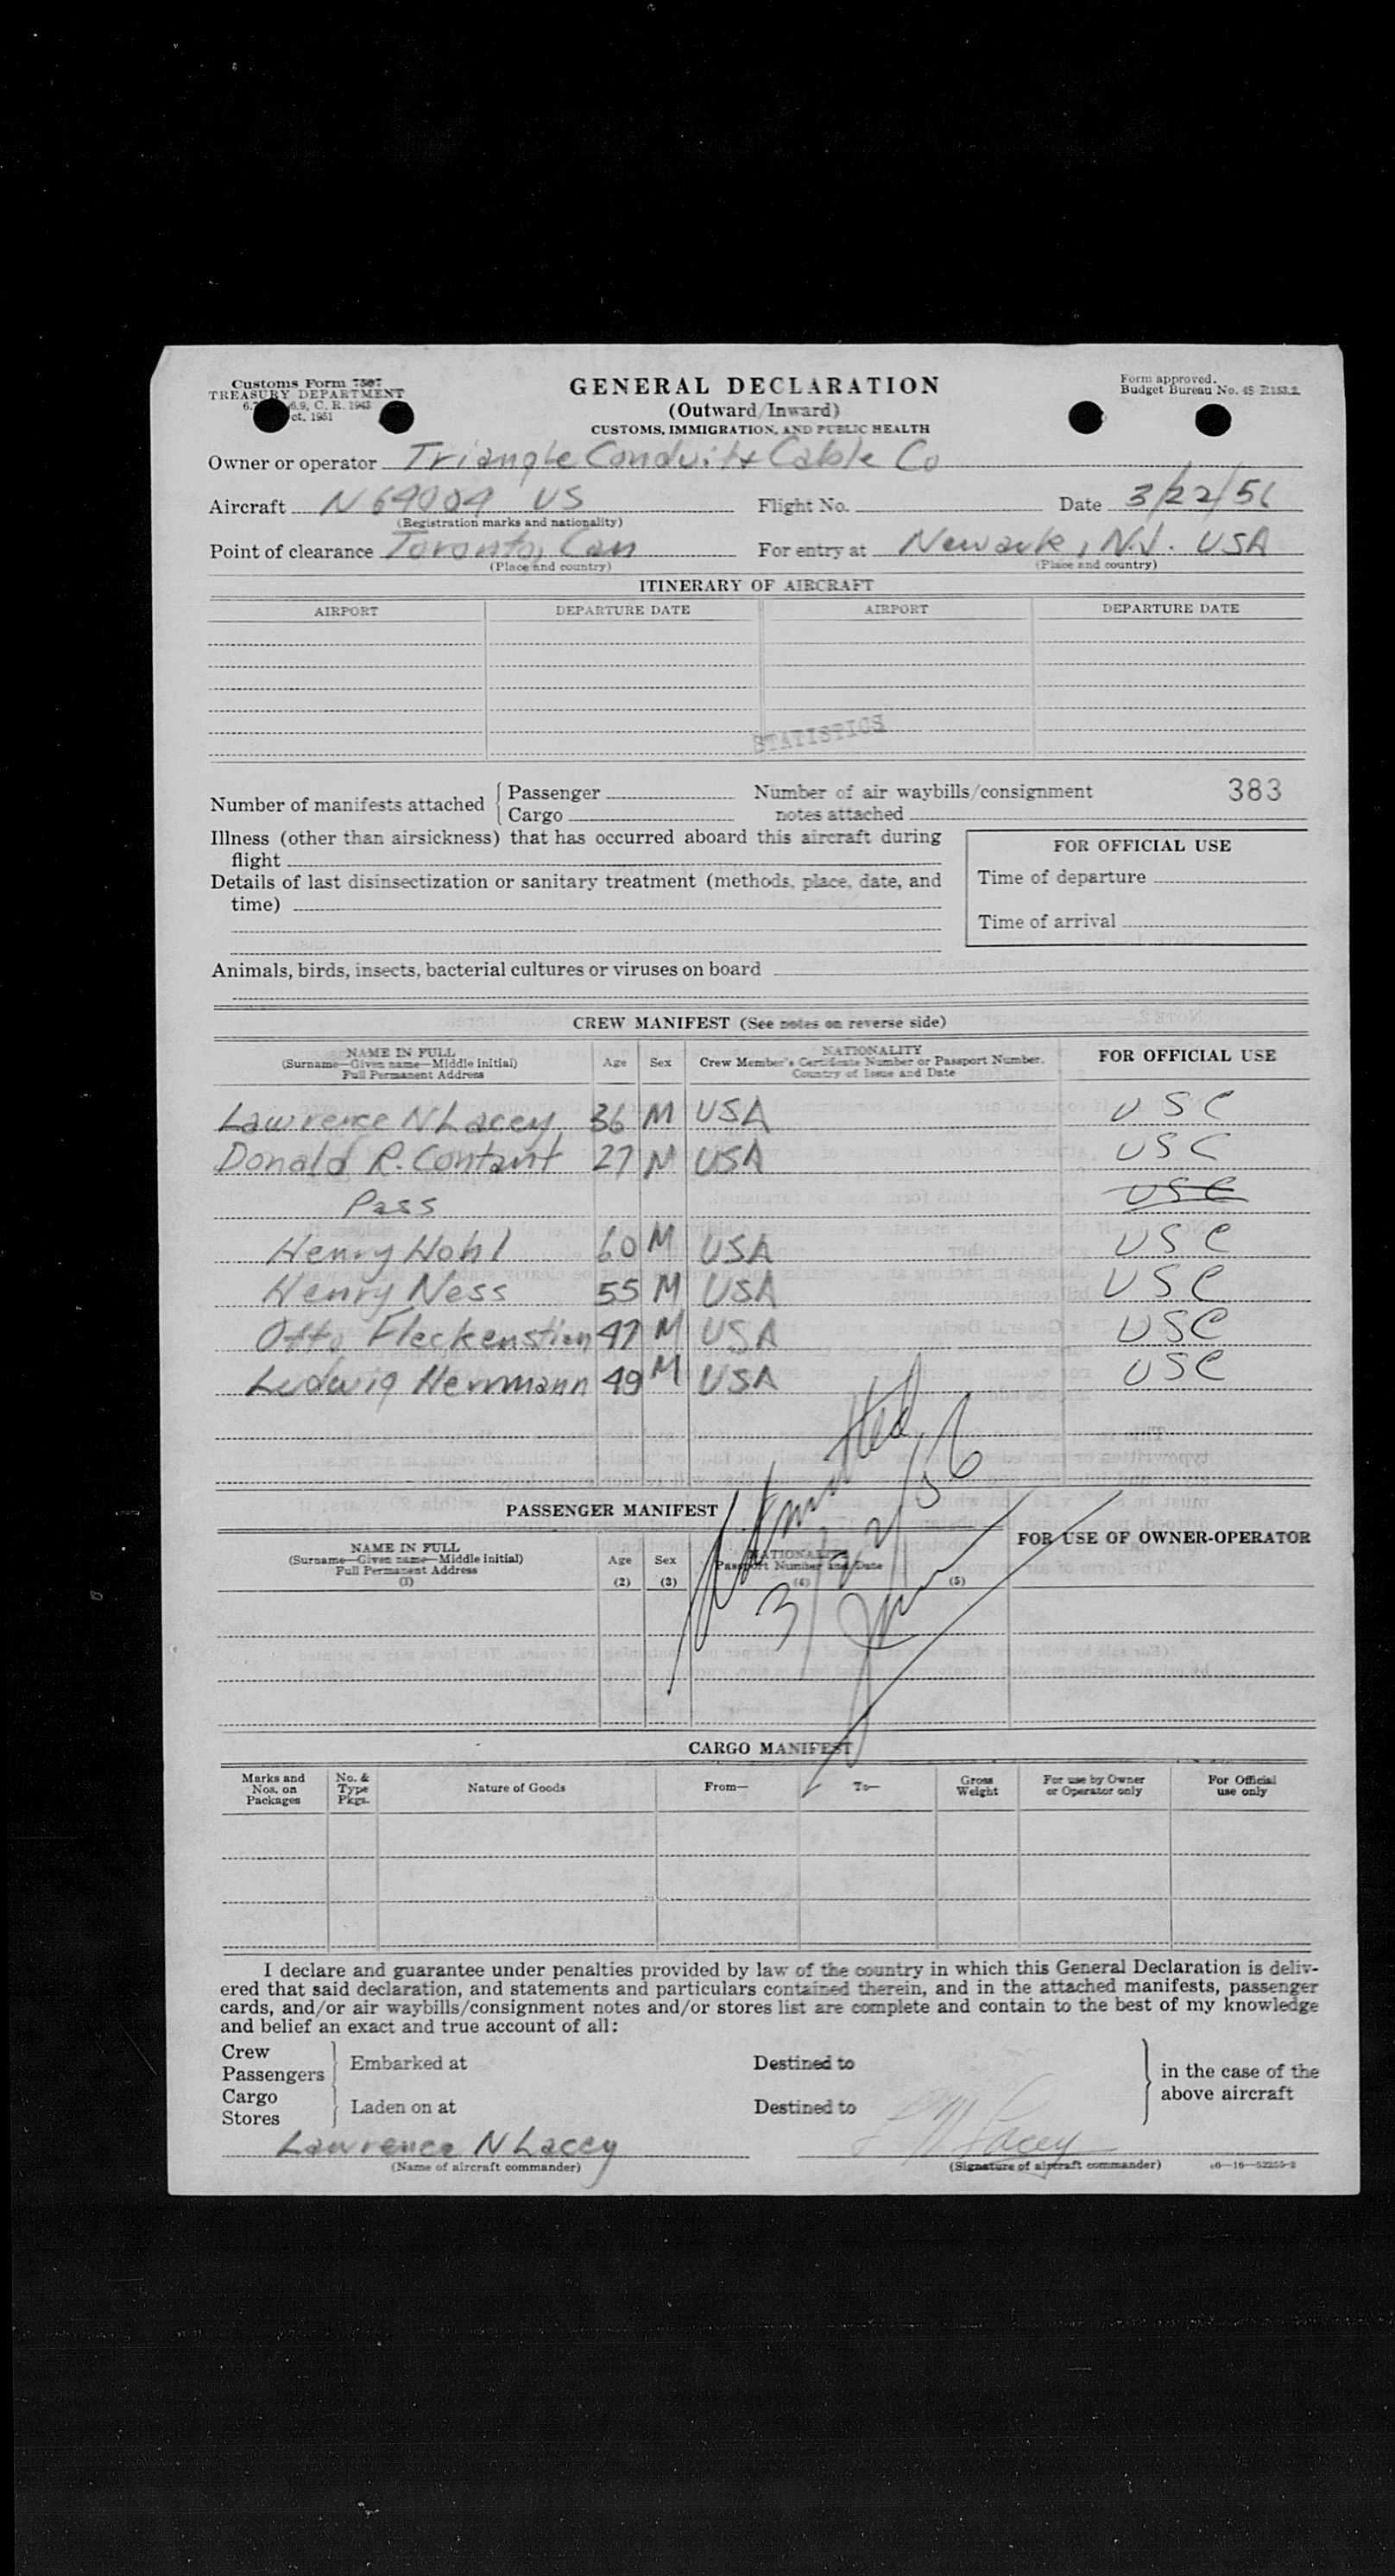 Customs Form 7507
TREASURY DEPARTMENT
6.9, C. R. 1943
ct. 1951
GENERAL DECLARATION
(Outward/Inward)
CUSTOMS, IMMIGRATION, AND PUBLIC HEALTH
Form approved.
Budget Bureau No. 45 R153.2.
Owner or operator Triangle Conduit & Cable Co
Aircraft N 64004 US Flight No. Date 3/22/56
(Registration marks and nationality)
Point of clearance Toronto, Can For entry at Newark, N.J. USA
(Place and country) (Place and country)
ITINERARY OF AIRCRAFT
AIRPORT DEPARTURE DATE AIRPORT DEPARTURE DATE
STATISTICS
383
Number of manifests attached Passenger Number of air waybills/consignment
Cargo notes attached
Illness (other than airsickness) that has occurred aboard this aircraft during
flight
FOR OFFICIAL USE
Details of last disinsectization or sanitary treatment (methods, place, date, and
time)
Time of departure
Time of arrival
Animals, birds, insects, bacterial cultures or viruses on board
CREW MANIFEST (See notes on reverse side)
NAME IN FULL
(Surname—Given name—Middle initial)
Full Permanent Address
Age Sex
NATIONALITY
Crew Member's Certificate Number or Passport Number.
Country of Issue and Date
FOR OFFICIAL USE
Lawrence N Lacey 36 M USA USC
Donald R. Contant 27 M USA USC
Pass USC
Henry Hohl 60 M USA USC
Henry Ness 55 M USA USC
Otto Fleckenstien 47 M USA USC
Ludwig Herrmann 49 M USA USC
Admitted
3/22/56
PASSENGER MANIFEST
FOR USE OF OWNER-OPERATOR
NAME IN FULL
(Surname—Given name—Middle initial)
Full Permanent Address
(1)
Age
(2)
Sex
(3)
NATIONALITY
Passport Number and Date
(4)
(5)
CARGO MANIFEST
Marks and Nos. on Packages No. & Type Pkgs. Nature of Goods From— To— Gross Weight For use by Owner or Operator only For Official use only
I declare and guarantee under penalties provided by law of the country in which this General Declaration is deliv-
ered that said declaration, and statements and particulars contained therein, and in the attached manifests, passenger
cards, and/or air waybills/consignment notes and/or stores list are complete and contain to the best of my knowledge
and belief an exact and true account of all:
Crew
Passengers Embarked at Destined to in the case of the
Cargo above aircraft
Stores Laden on at Destined to
Lawrence N Lacey L N Lacey
(Name of aircraft commander) (Signature of aircraft commander) c6—16—52255-2